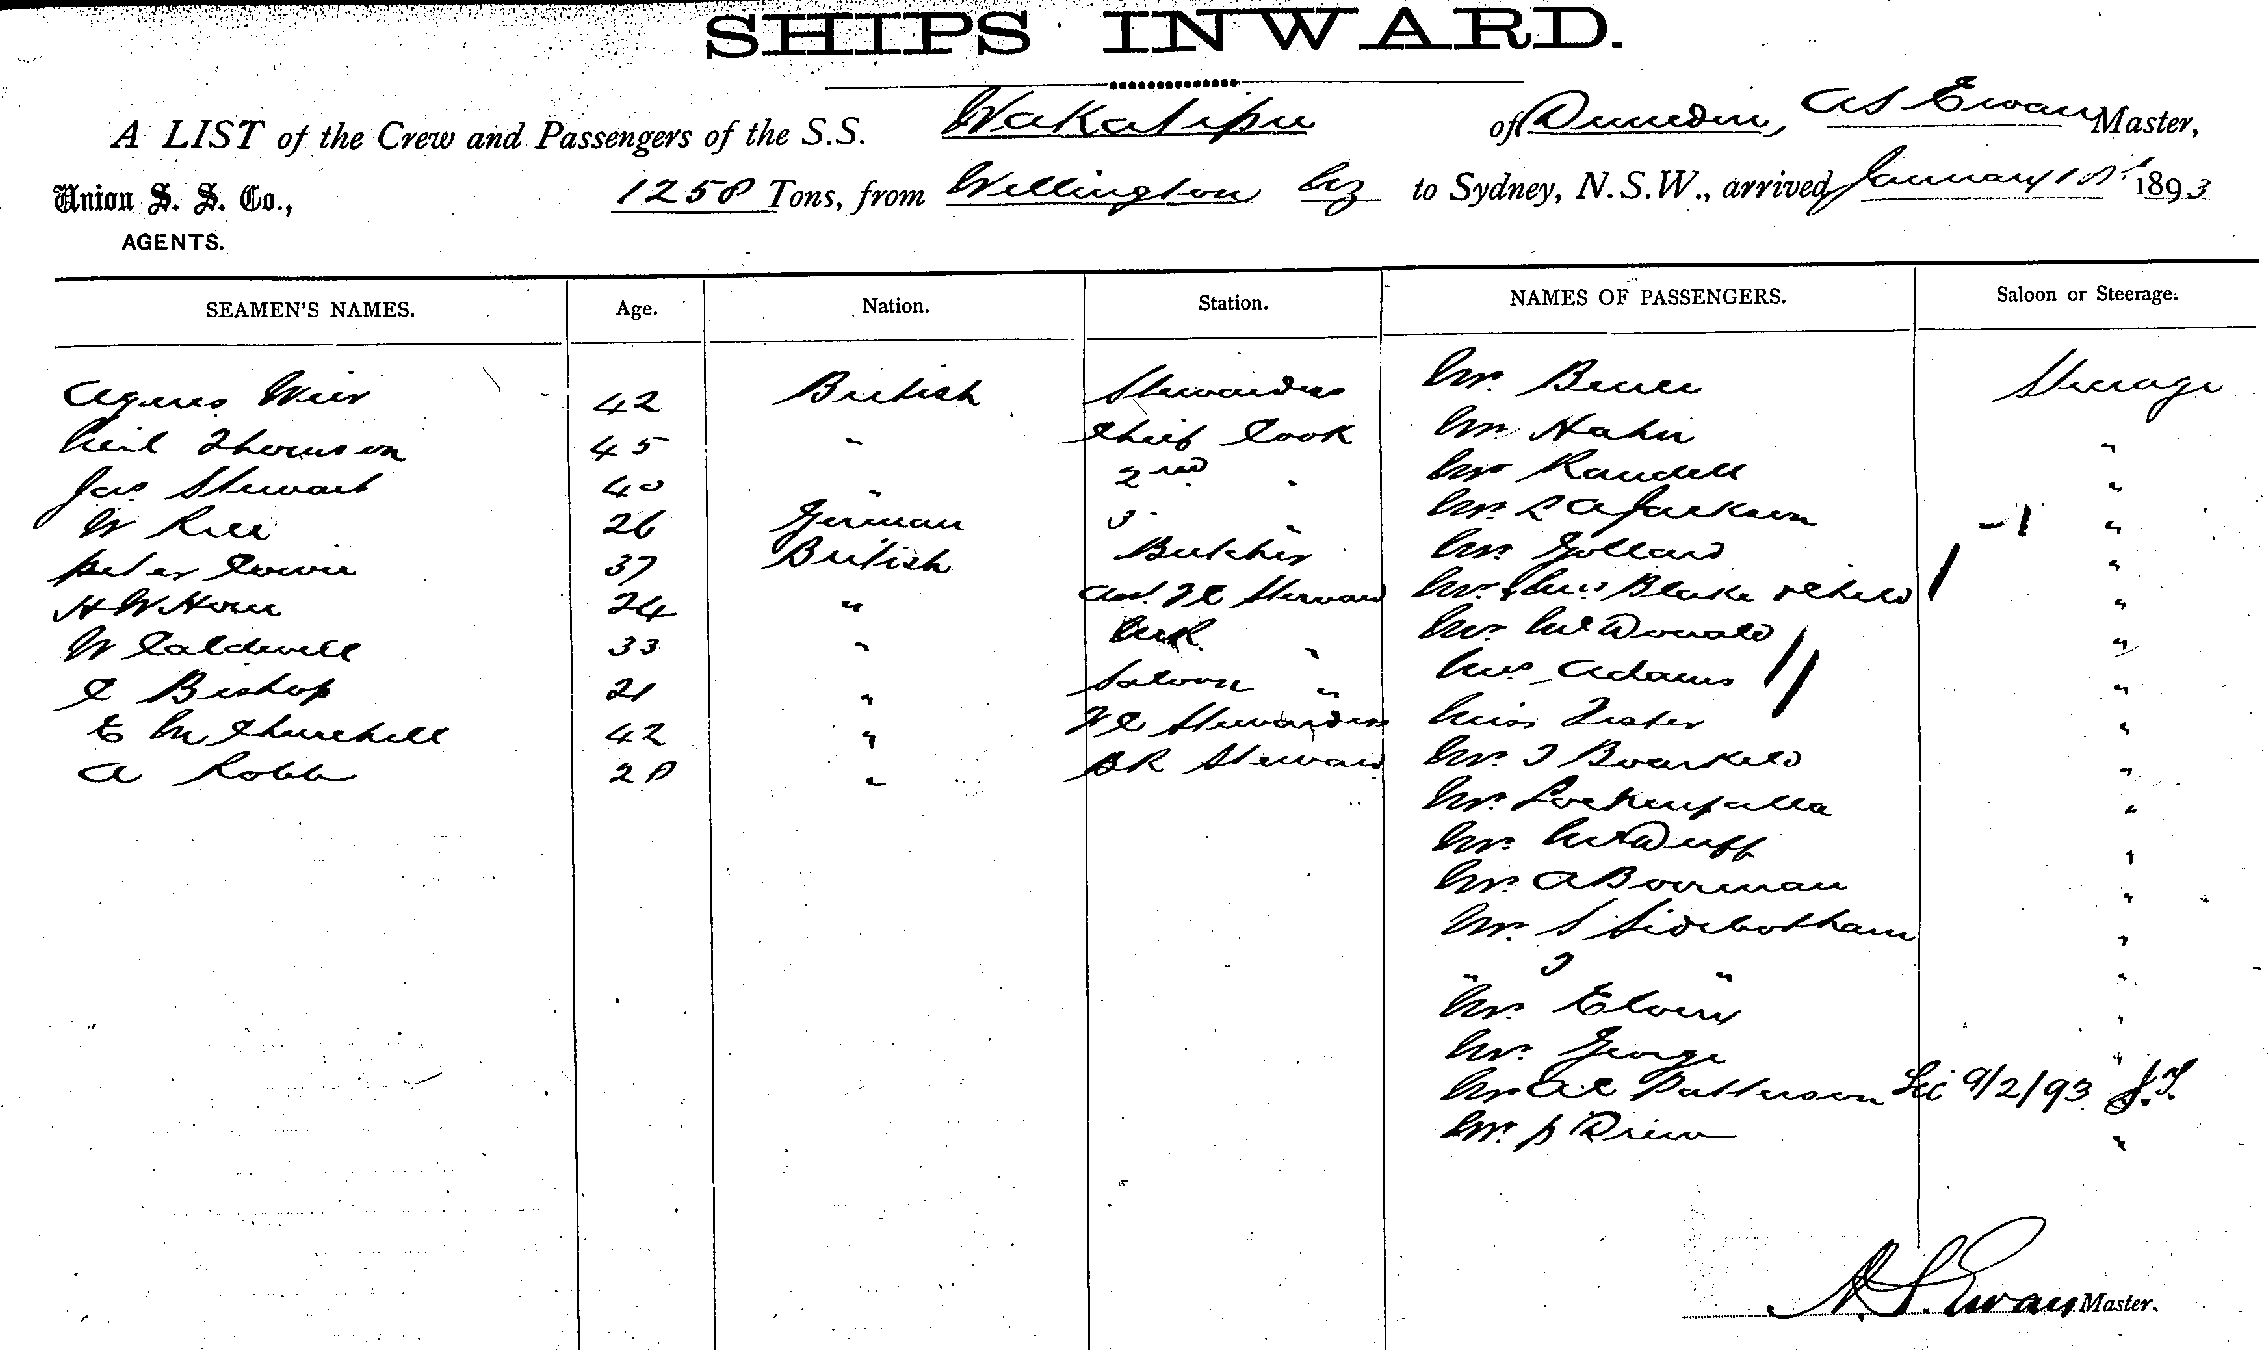 SHIPS INWARD.
A LIST of the Crew and Passengers of the S.S. Wakatipu of Dunedin, A S Ewan Master,
Union S. S. Co., 1258 Tons, from Wellington NZ to Sydney, N.S.W., arrived January 1893
AGENTS.
SEAMEN'S NAMES. Age. Nation. Station. NAMES OF PASSENGERS. Saloon or Steerage.
Agnes Weir 42 British Stewardess Mr. Steerage
Neil Thomson 45 " Chief Cook Mr. Hahn "
Jas Stewart 40 " 2nd " Mr Randell "
W 26 German 3 " Mr. L A Jackson - 1 "
Peter 37 British Butcher Mr. Gollard "
H W 24 " Asst. F C Steward Mr. & Mrs Blake & Child "
W Caldwell 33 " " Mr. McDonald "
C Bishop 21 " Saloon " Mrs Adams "
E M Churchill 42 " F C Stewardess Miss "
A Robb 28 " B R Steward Mr. J "
Mr. "
Mr. McDuff "
Mr. A Boorman "
Mr. S Sidebotham "
" J " "
Mr. "
Mr. George "
Mr A C Patterson Lic 9/2/93 J.T.
Mr. P Drew "
A. S. Ewan Master.